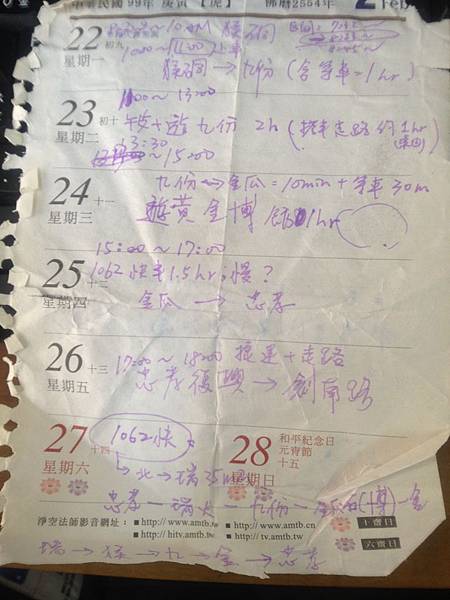 中華民國 99年 庚寅【虎】 佛曆2554年 2 Feb
22 初九
10:00 ~ 11:00 上車
星期一
猴硐 → 九份 (含等車=1hr)
11:00 ~ 13:00
23 初十
午安+遊 九份 2h (搭車走路 約1hr
星期二
13:30 ~ 15:00
九份 → 金瓜 = 10min + 等車 30m
24 十一
星期三
遊黃金博館 1hr
15:00 ~ 17:00
25 十二
1062 快車 1.5hr, 慢?
星期四
金瓜 → 忠孝
26 十三
17:00 ~ 18:00 捷運+走路
星期五
忠孝復興 → 劍南路
27 十四
1062快
28 和平紀念日 元宵節 十五
星期六
星期日
北→瑞 35m
忠孝 — 瑞火 — 九份 — (博) — 金
淨空法師影音網址:
■ http://www.amtb.tw
■ http://www.amtb.cn
十齋日
■ http://hitv.amtb.tw
■ http://tv.amtb.tw
六齋日
瑞 → 猴 → 九 → 金 → 忠孝